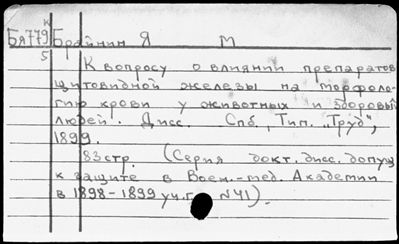 к
Бя779 Брайнин Я М
5
К вопросу о влиянии препаратов
щитовидной железы на морфоло-
гию крови у животных и здоровых
людей. Дисс. Спб, Тип. „Труд",
1899.
83стр. (Серия докт. дисс. допущ
к защите в Воен.-мед. Академии
в 1898-1899 уч.г. №41).